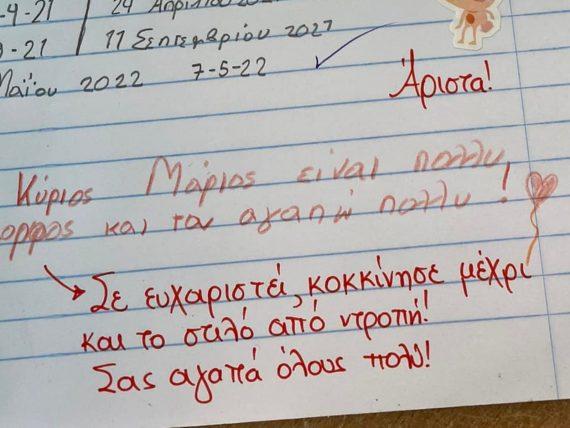 -4-21 | 24 Απριλίου
-21 | 11 Σεπτεμβρίου 2027
Μαΐου 2022 7-5-22
Άριστα!
Κύριος Μάριος είναι πολλυ
ορφος και τον αγαπώ πολλυ!
Σε ευχαριστεί, κοκκίνησε μέχρι
και το στιλό από ντροπή!
Σας αγαπά όλους πολύ!